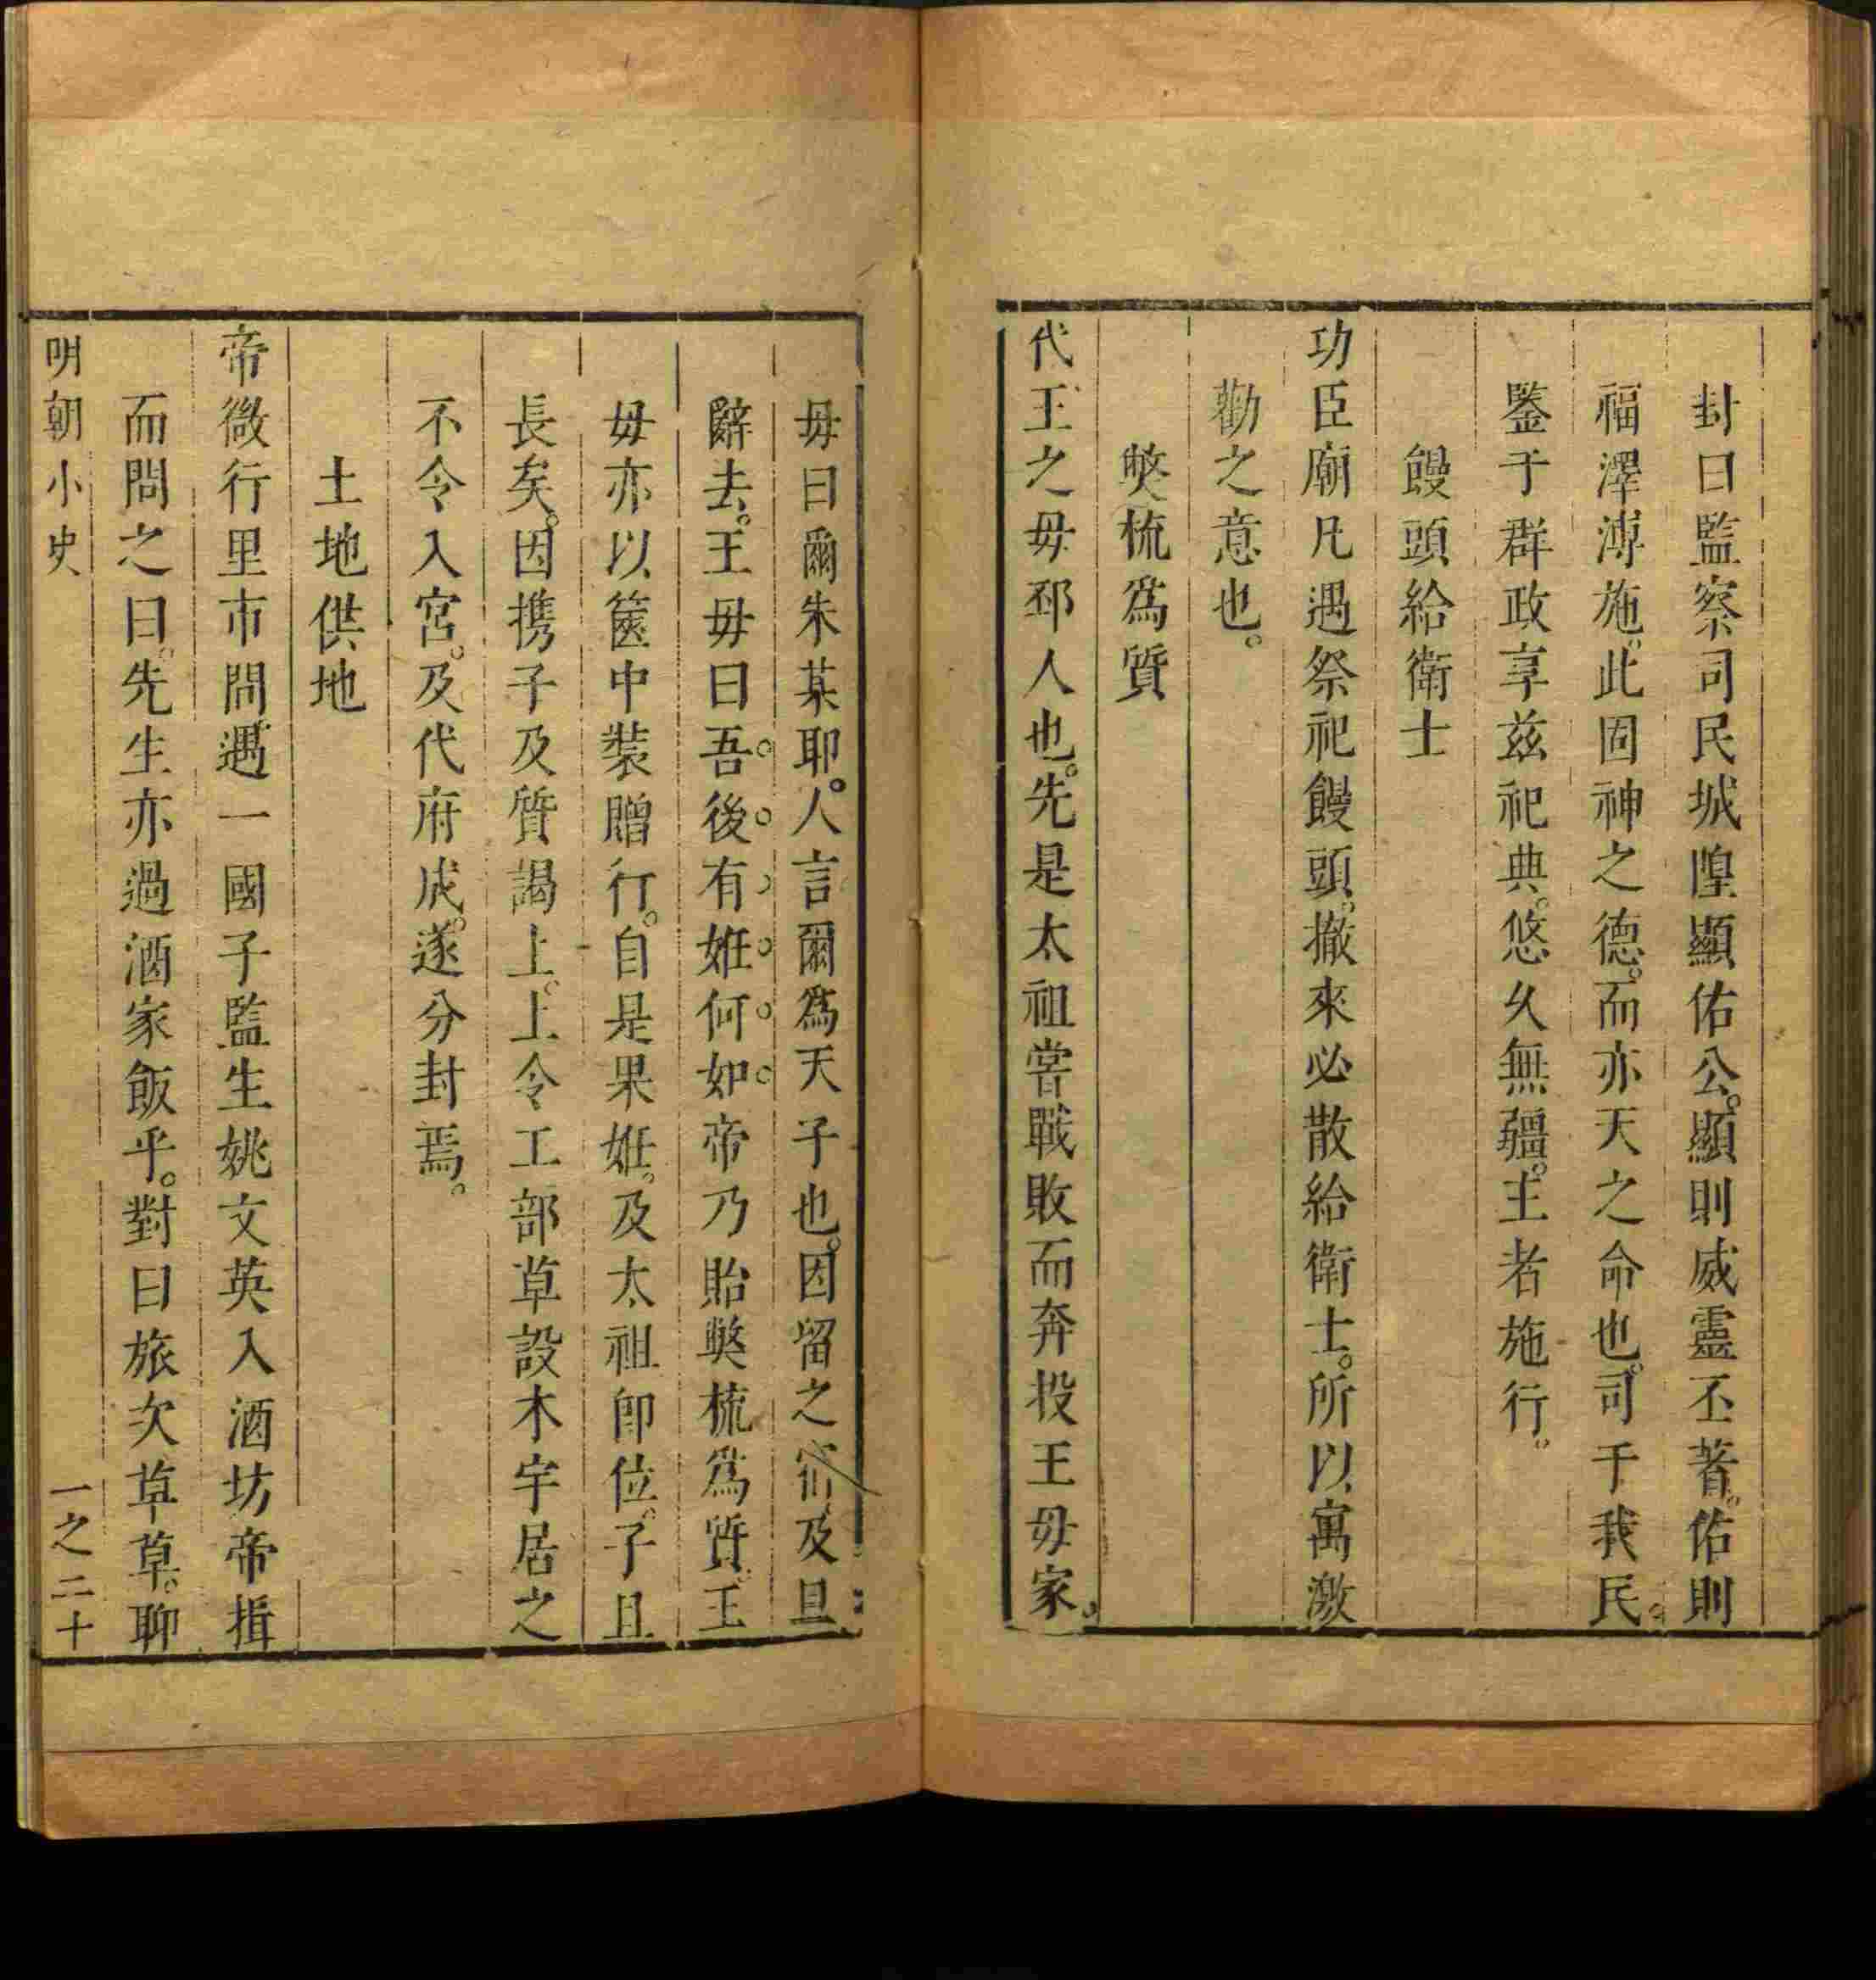 封曰監察司民城隍顯佑公。顯則威靈丕著。佑則
福澤溥施。此固神之德。而亦天之命也。司于我民。
鑒于群政享兹祀典。悠久無疆。主者施行。
饅頭給衛士
功臣廟凡遇祭祀饅頭。撤來必散給衛士。所以寓激
勸之意也。
獘梳爲質
代王之毋邳人也。先是太祖嘗戰敗而奔投王毋家。
毋曰爾朱某耶。人言爾爲天子也。因留之宿及旦
辭去。王毋曰吾後有姙何如帝乃貽獘梳爲質。王
毋亦以篋中裝贈行。自是果姙。及太祖卽位。子且
長矣。因携子及質謁上。上令工部草設木宇居之
不令入宮。及代府成。遂分封焉。
土地供地
帝微行里市間遇一國子監生姚文英入酒坊帝揖
而問之曰。先生亦過酒家飯乎。對曰旅次草草。聊
明朝小史
一之二十